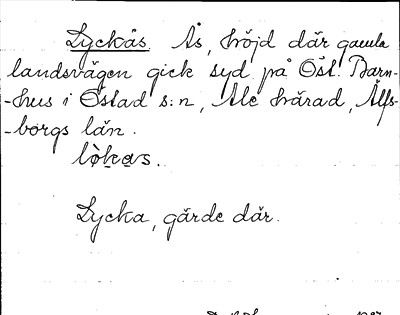 Lyckås Ås, höjd där gamla
landsvägen gick syd på Öst. Barn-
-hus i Östad s:n, Ale härad, Älfs-
-borgs län.
lòkas.
Lycka, gärde där.